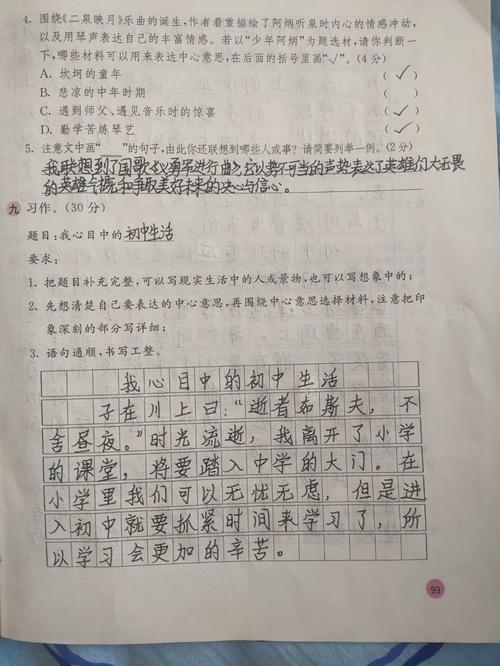 4. 围绕《二泉映月》乐曲的诞生,作者着重描绘了阿炳听泉时内心的情感冲动,
以及用琴声表达自己的丰富情感。若以“少年阿炳”为题选材,请你判断一
下,哪些材料可以用来表达中心意思,在后面的括号里画“√”。(4分)
A. 坎坷的童年 (√)
B. 悲凉的中年时期 ( )
C. 遇到师父、遇见音乐时的惊喜 (√)
D. 勤学苦练琴艺 (√)
5. 注意文中画“ ”的句子,由此你还联想到哪些人或事?请简要列举一例。(2分)
我联想到了国歌《义勇军进行曲》,它以势不可当的声势表达了英雄们大无畏
的英雄气概和争取美好未来的决心与信心。
九 习作。(30分)
题目:我心目中的初中生活
要求:
1. 把题目补充完整,可以写现实生活中的人或景物,也可以写想象中的;
2. 先想清楚自己要表达的中心意思,再围绕中心意思选择材料,注意把印
象深刻的部分写详细;
3. 语句通顺,书写工整。
我心目中的初中生活
子在川上曰:“逝者布斯夫,不
舍昼夜。”时光流逝,我离开了小学
的课堂,将要踏入中学的大门。在
小学里我们可以无忧无虑,但是进
入初中就要抓紧时间来学习了,所
以学习会更加的辛苦。
99